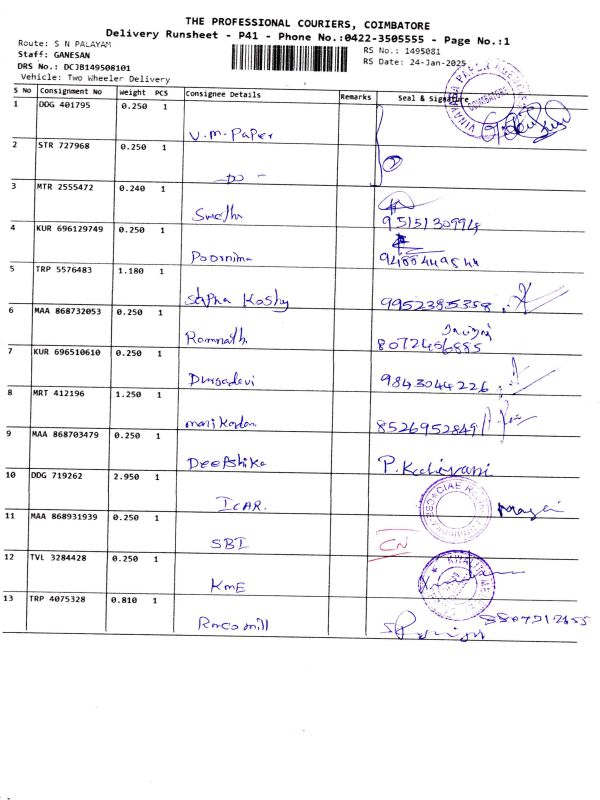 THE PROFESSIONAL COURIERS, COIMBATORE
Delivery Runsheet - P41 - Phone No.:0422-3505555 - Page No.:1
Route: S N PALAYAM
Staff: GANESAN
DRS No.: DCJB149508101
Vehicle: Two Wheeler Delivery
RS No.: 1495081
RS Date: 24-Jan-2025
S No Consignment No Weight PCS Consignee Details Remarks Seal & Signature
1 DDG 401795 0.250 1
V.M. Paper
2 STR 727968 0.250 1
3 MTR 2555472 0.240 1
Swetha 9515130994
4 KUR 696129749 0.250 1
Poornima
5 TRP 5576483 1.180 1
Koshy 9952385358
6 MAA 868732053 0.250 1
Ramnath.
7 KUR 696510610 0.250 1
Durgadevi 9843044226
8 MRT 412196 1.250 1
8526952849
9 MAA 868703479 0.250 1
Deepshika
10 DDG 719262 2.950 1
ICAR.
11 MAA 868931939 0.250 1
SBI CN
12 TVL 3284428 0.250 1
KME
13 TRP 4075328 0.810 1